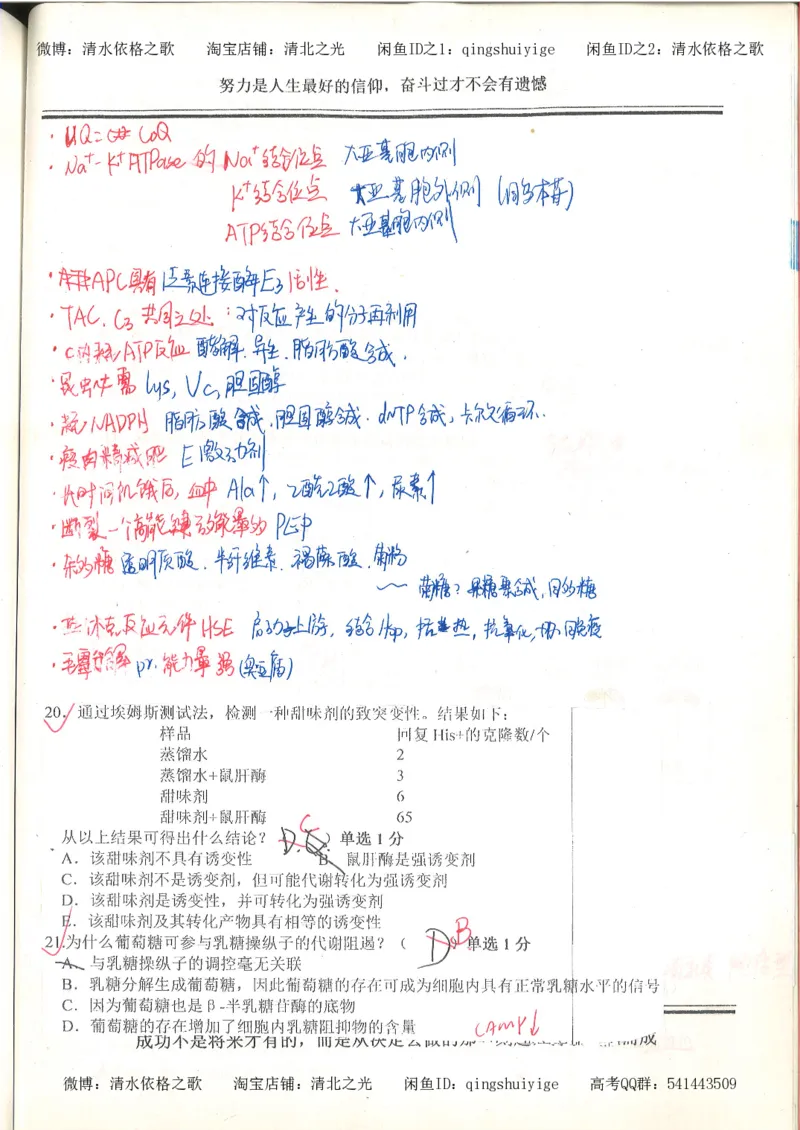 微博：清水依格之歌 淘宝店铺：清北之光 闲鱼ID之1：qingshuiyige 闲鱼ID之2：清水依格之歌
努力是人生最好的信仰，奋斗过才不会有遗憾
· UQ = CoQ
· Na⁺-K⁺ATPase 的 Na⁺结合位点 大亚基胞内侧
K⁺结合位点 大亚基胞外侧 (同乌本苷)
ATP结合位点 大亚基胞内侧
· APC具有 泛素连接酶E3 活性.
· TAC. C3 共同之处：对反应产生的分子再利用
· ATP反应 酵解. 异生. 脂肪酸合成.
· 昆虫体需 lys, Vc, 胆固醇
· NADPH 脂肪酸合成. 胆固醇合成. dNTP合成, 卡尔文循环.
· 瘦肉精成肥 E激动剂
· 长时间饥饿后, 血中 Ala↑, 乙酰乙酸↑, 尿素↑
· 断裂一个高能键 PEP
· 杂多糖 透明质酸. 半纤维素. 褐藻酸. 菊粉
菊糖? 果糖聚合成, 同多糖
· 热休克反应元件HSE 启动子上游, 结合Hsp, 抗氧化,
· pr. 能力最强 (臭豆腐)
20. 通过埃姆斯测试法，检测一种甜味剂的致突变性。结果如下：
样品 回复 His+的克隆数/个
蒸馏水 2
蒸馏水+鼠肝酶 3
甜味剂 6
甜味剂+鼠肝酶 65
从以上结果可得出什么结论？ D. C ）单选 1 分
A．该甜味剂不具有诱变性 B．鼠肝酶是强诱变剂
C．该甜味剂不是诱变剂，但可能代谢转化为强诱变剂
D．该甜味剂是诱变性，并可转化为强诱变剂
E．该甜味剂及其转化产物具有相等的诱变性
21.为什么葡萄糖可参与乳糖操纵子的代谢阻遏？（ D B 单选 1 分
A．与乳糖操纵子的调控毫无关联
B．乳糖分解生成葡萄糖，因此葡萄糖的存在可成为细胞内具有正常乳糖水平的信号
C．因为葡萄糖也是β-半乳糖苷酶的底物
D．葡萄糖的存在增加了细胞内乳糖阻抑物的含量 cAMP↓
成功不是将来才有的，而是从决定去做的那
微博：清水依格之歌 淘宝店铺：清北之光 闲鱼ID：qingshuiyige 高考QQ群：541443509